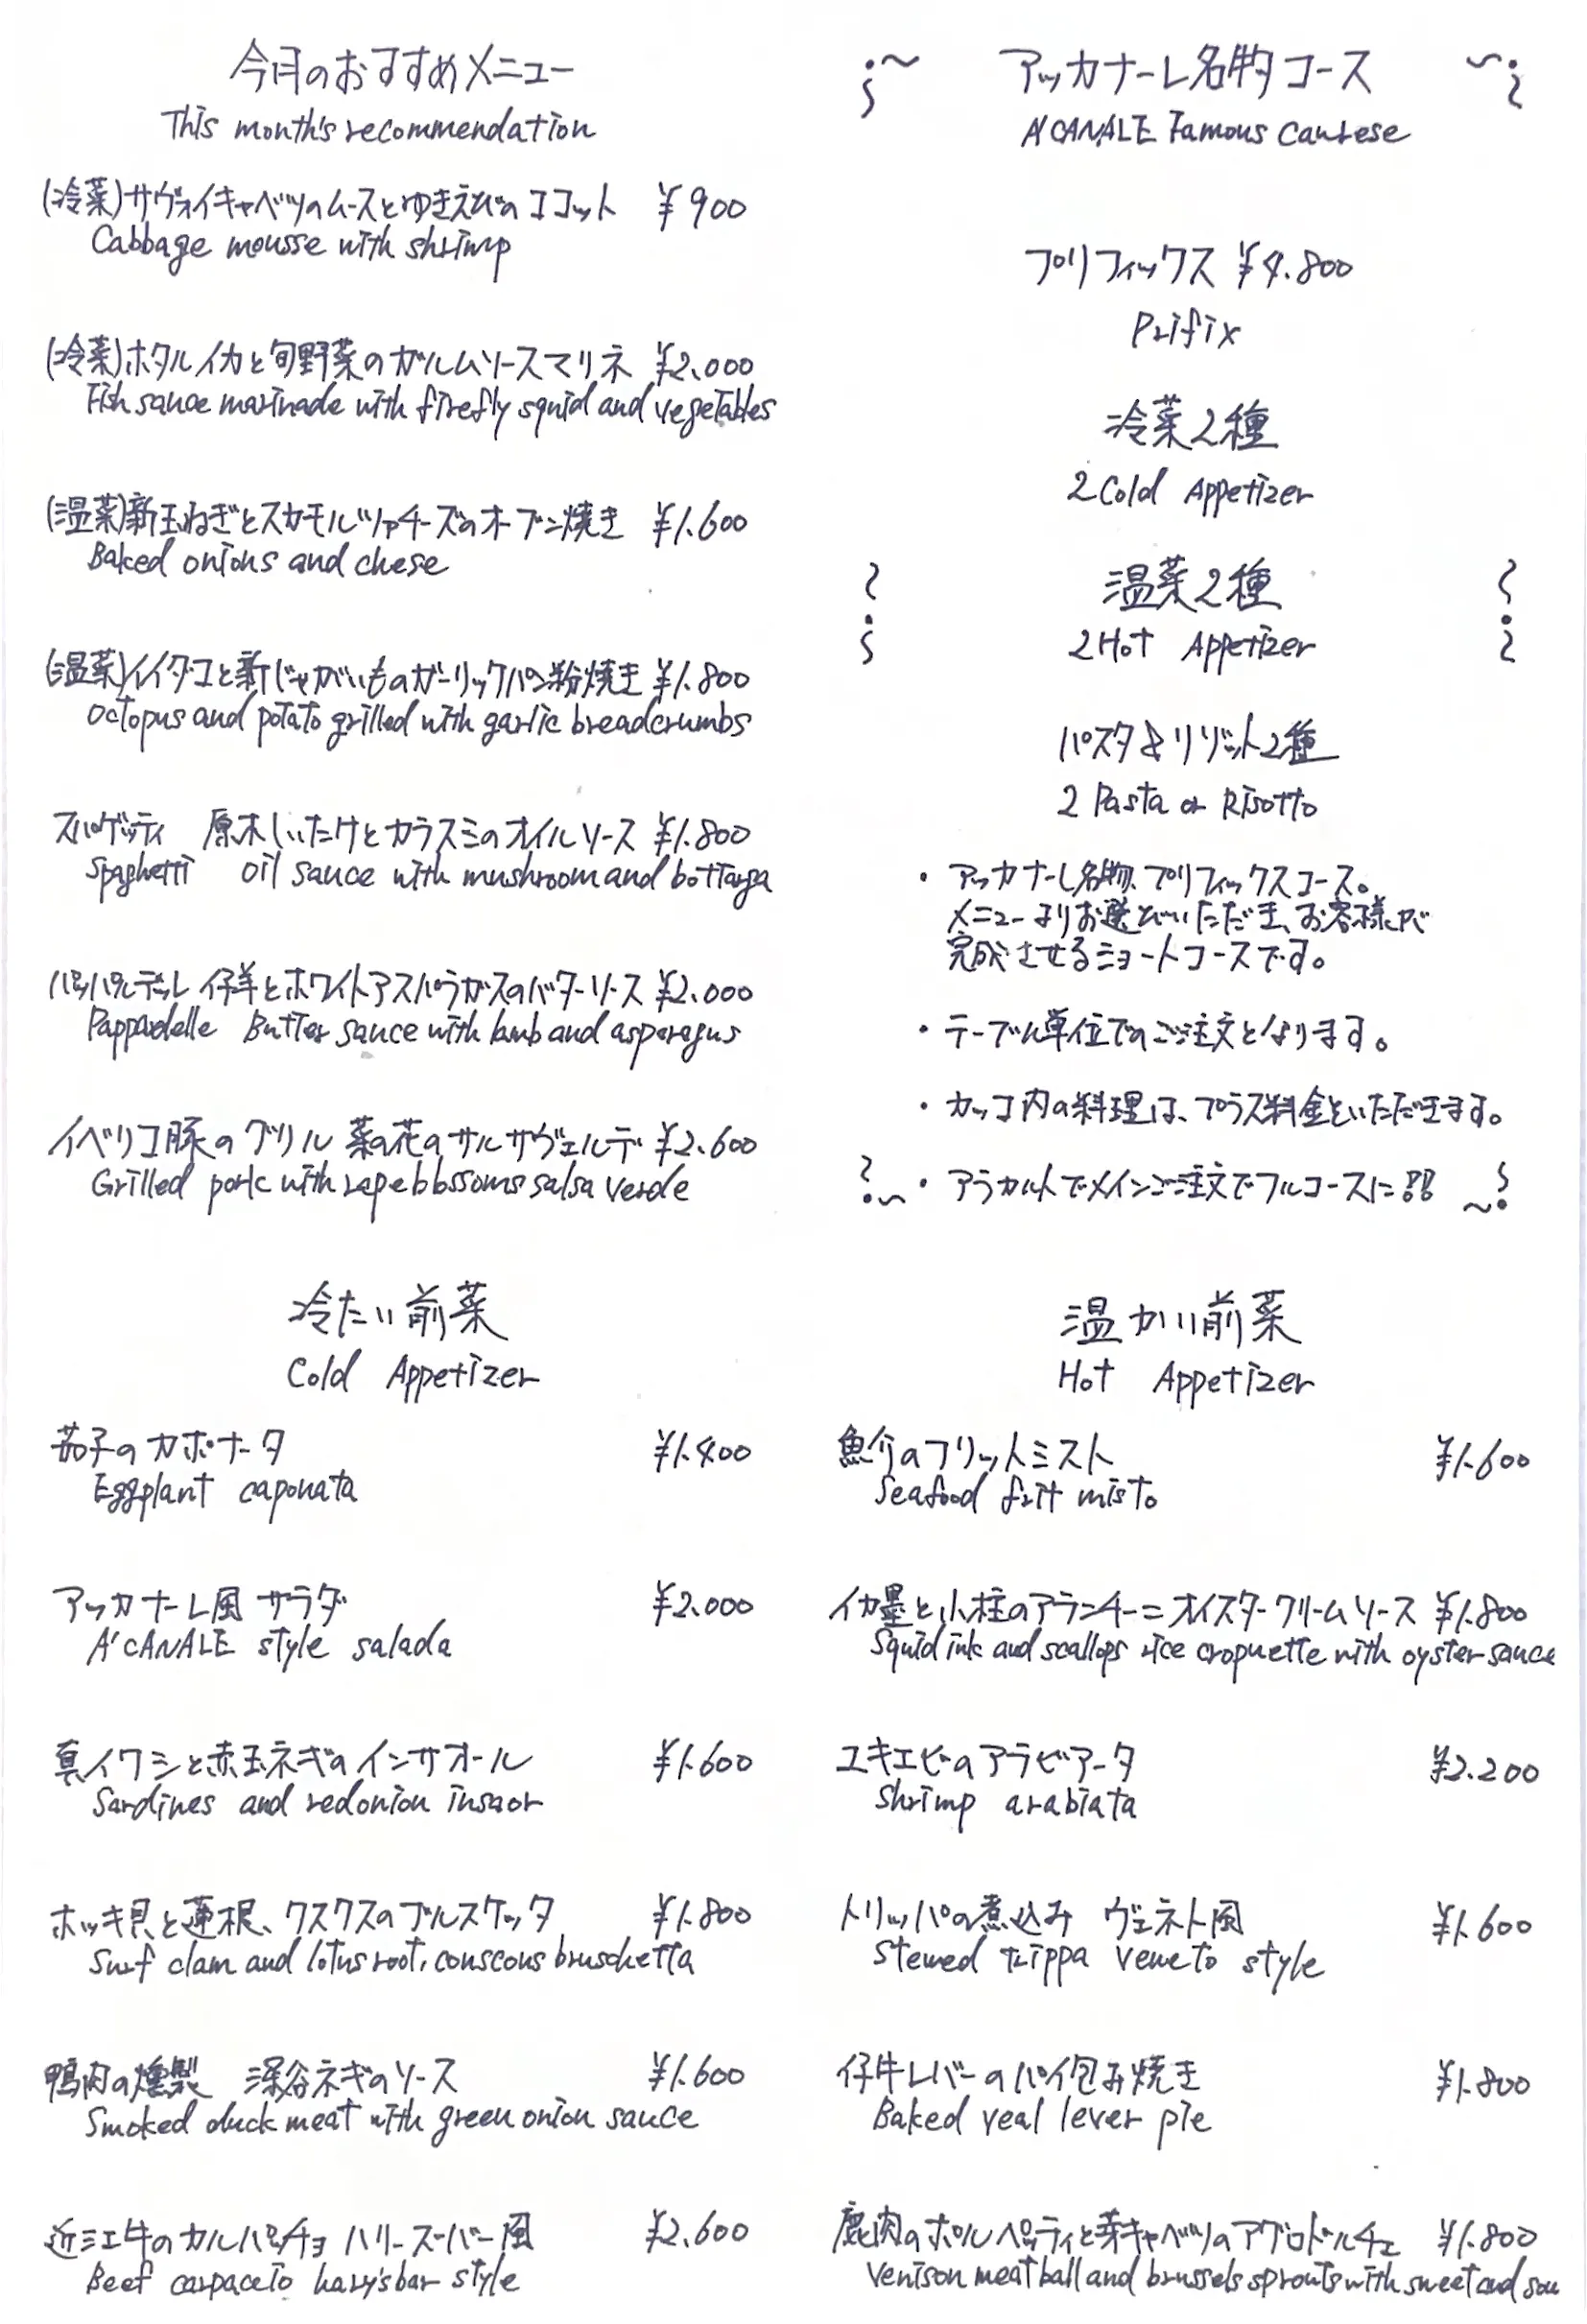 今月のおすすめメニュー
This month's recommendation
(冷菜)サヴォイキャベツのムースとゆきえびのココット ¥900
Cabbage mousse with shrimp
(冷菜)ホタルイカと旬野菜のガルムソースマリネ ¥2.000
Fish sauce marinade with firefly squid and vegetables
(温菜)新玉ねぎとスカモルツァチーズのオーブン焼き ¥1.600
Baked onions and chese
(温菜)イイダコと新じゃがいものガーリックパン粉焼き ¥1.800
Octopus and potato grilled with garlic breadcrumbs
スパゲッティ 原木しいたけとカラスミのオイルソース ¥1.800
Spaghetti oil sauce with mushroom and bottarga
パッパルデッレ 仔羊とホワイトアスパラガスのバターソース ¥2.000
Pappardelle Butter sauce with lamb and asparagus
イベリコ豚のグリル 菜の花のサルサヴェルデ ¥2.600
Grilled pork with rape blossoms salsa verde
アッカナーレ名物コース
A'CANALE Famous Caurese
プリフィックス ¥4.800
Prifix
冷菜2種
2 Cold Appetizer
温菜2種
2 Hot Appetizer
パスタ&リゾット2種
2 Pasta or Risotto
・アッカナーレ名物、プリフィックスコース。
メニューよりお選びいただき、お客様が
完成させるショートコースです。
・テーブル単位でのご注文となります。
・カッコ内の料理は、プラス料金をいただきます。
・アラカルトでメインご注文でフルコースに!!
冷たい前菜
Cold Appetizer
茄子のカポナータ ¥1.400
Eggplant caponata
アッカナーレ風 サラダ ¥2.000
A'CANALE style salada
真イワシと赤玉ネギのインサオール ¥1.600
Sardines and redonion insaor
ホッキ貝と蓮根、クスクスのブルスケッタ ¥1.800
Surf clam and lotus root, couscous bruschetta
鴨肉の燻製 深谷ネギのソース ¥1.600
Smoked duck meat with green onion sauce
近江牛のカルパッチョ ハリーズバー風 ¥2.600
Beef carpaccio harry's bar style
温かい前菜
Hot Appetizer
魚介のフリットミスト ¥1.600
Seafood frit misto
イカ墨と小柱のアランチーニ オイスタークリームソース ¥1.800
Squid ink and scallops rice croquette with oyster sauce
ユキエビのアラビアータ ¥2.200
Shrimp arabiata
トリッパの煮込み ヴェネト風 ¥1.600
Stewed trippa veneto style
仔牛レバーのパイ包み焼き ¥1.800
Baked veal lever pie
鹿肉のポルペッティと芽キャベツのアグロドルチェ ¥1.800
Venison meat ball and brussels sprouts with sweet and sou